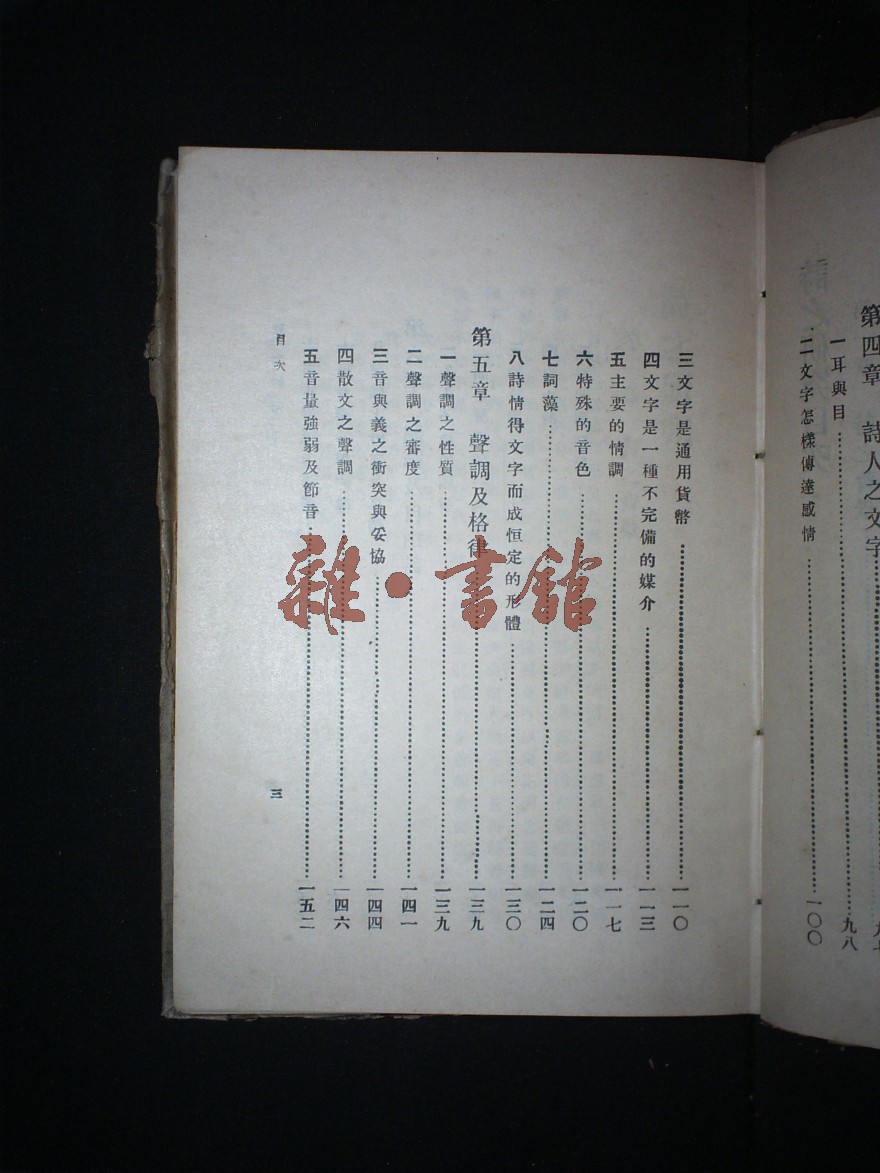 第四章 詩人之文字
一 耳與目……九八
二 文字怎樣傳達感情……一〇〇
三 文字是通用貨幣……一一〇
四 文字是一種不完備的媒介……一一三
五 主要的情調……一一七
六 特殊的音色……一二〇
七 詞藻……一二四
八 詩情得文字而成恒定的形體……一三〇
第五章 聲調及格律……一三九
一 聲調之性質……一三九
二 聲調之審度……一四一
三 音與義之衝突與妥協……一四四
四 散文之聲調……一四六
五 音量強弱及節音……一五二
目次
三
雜·書館